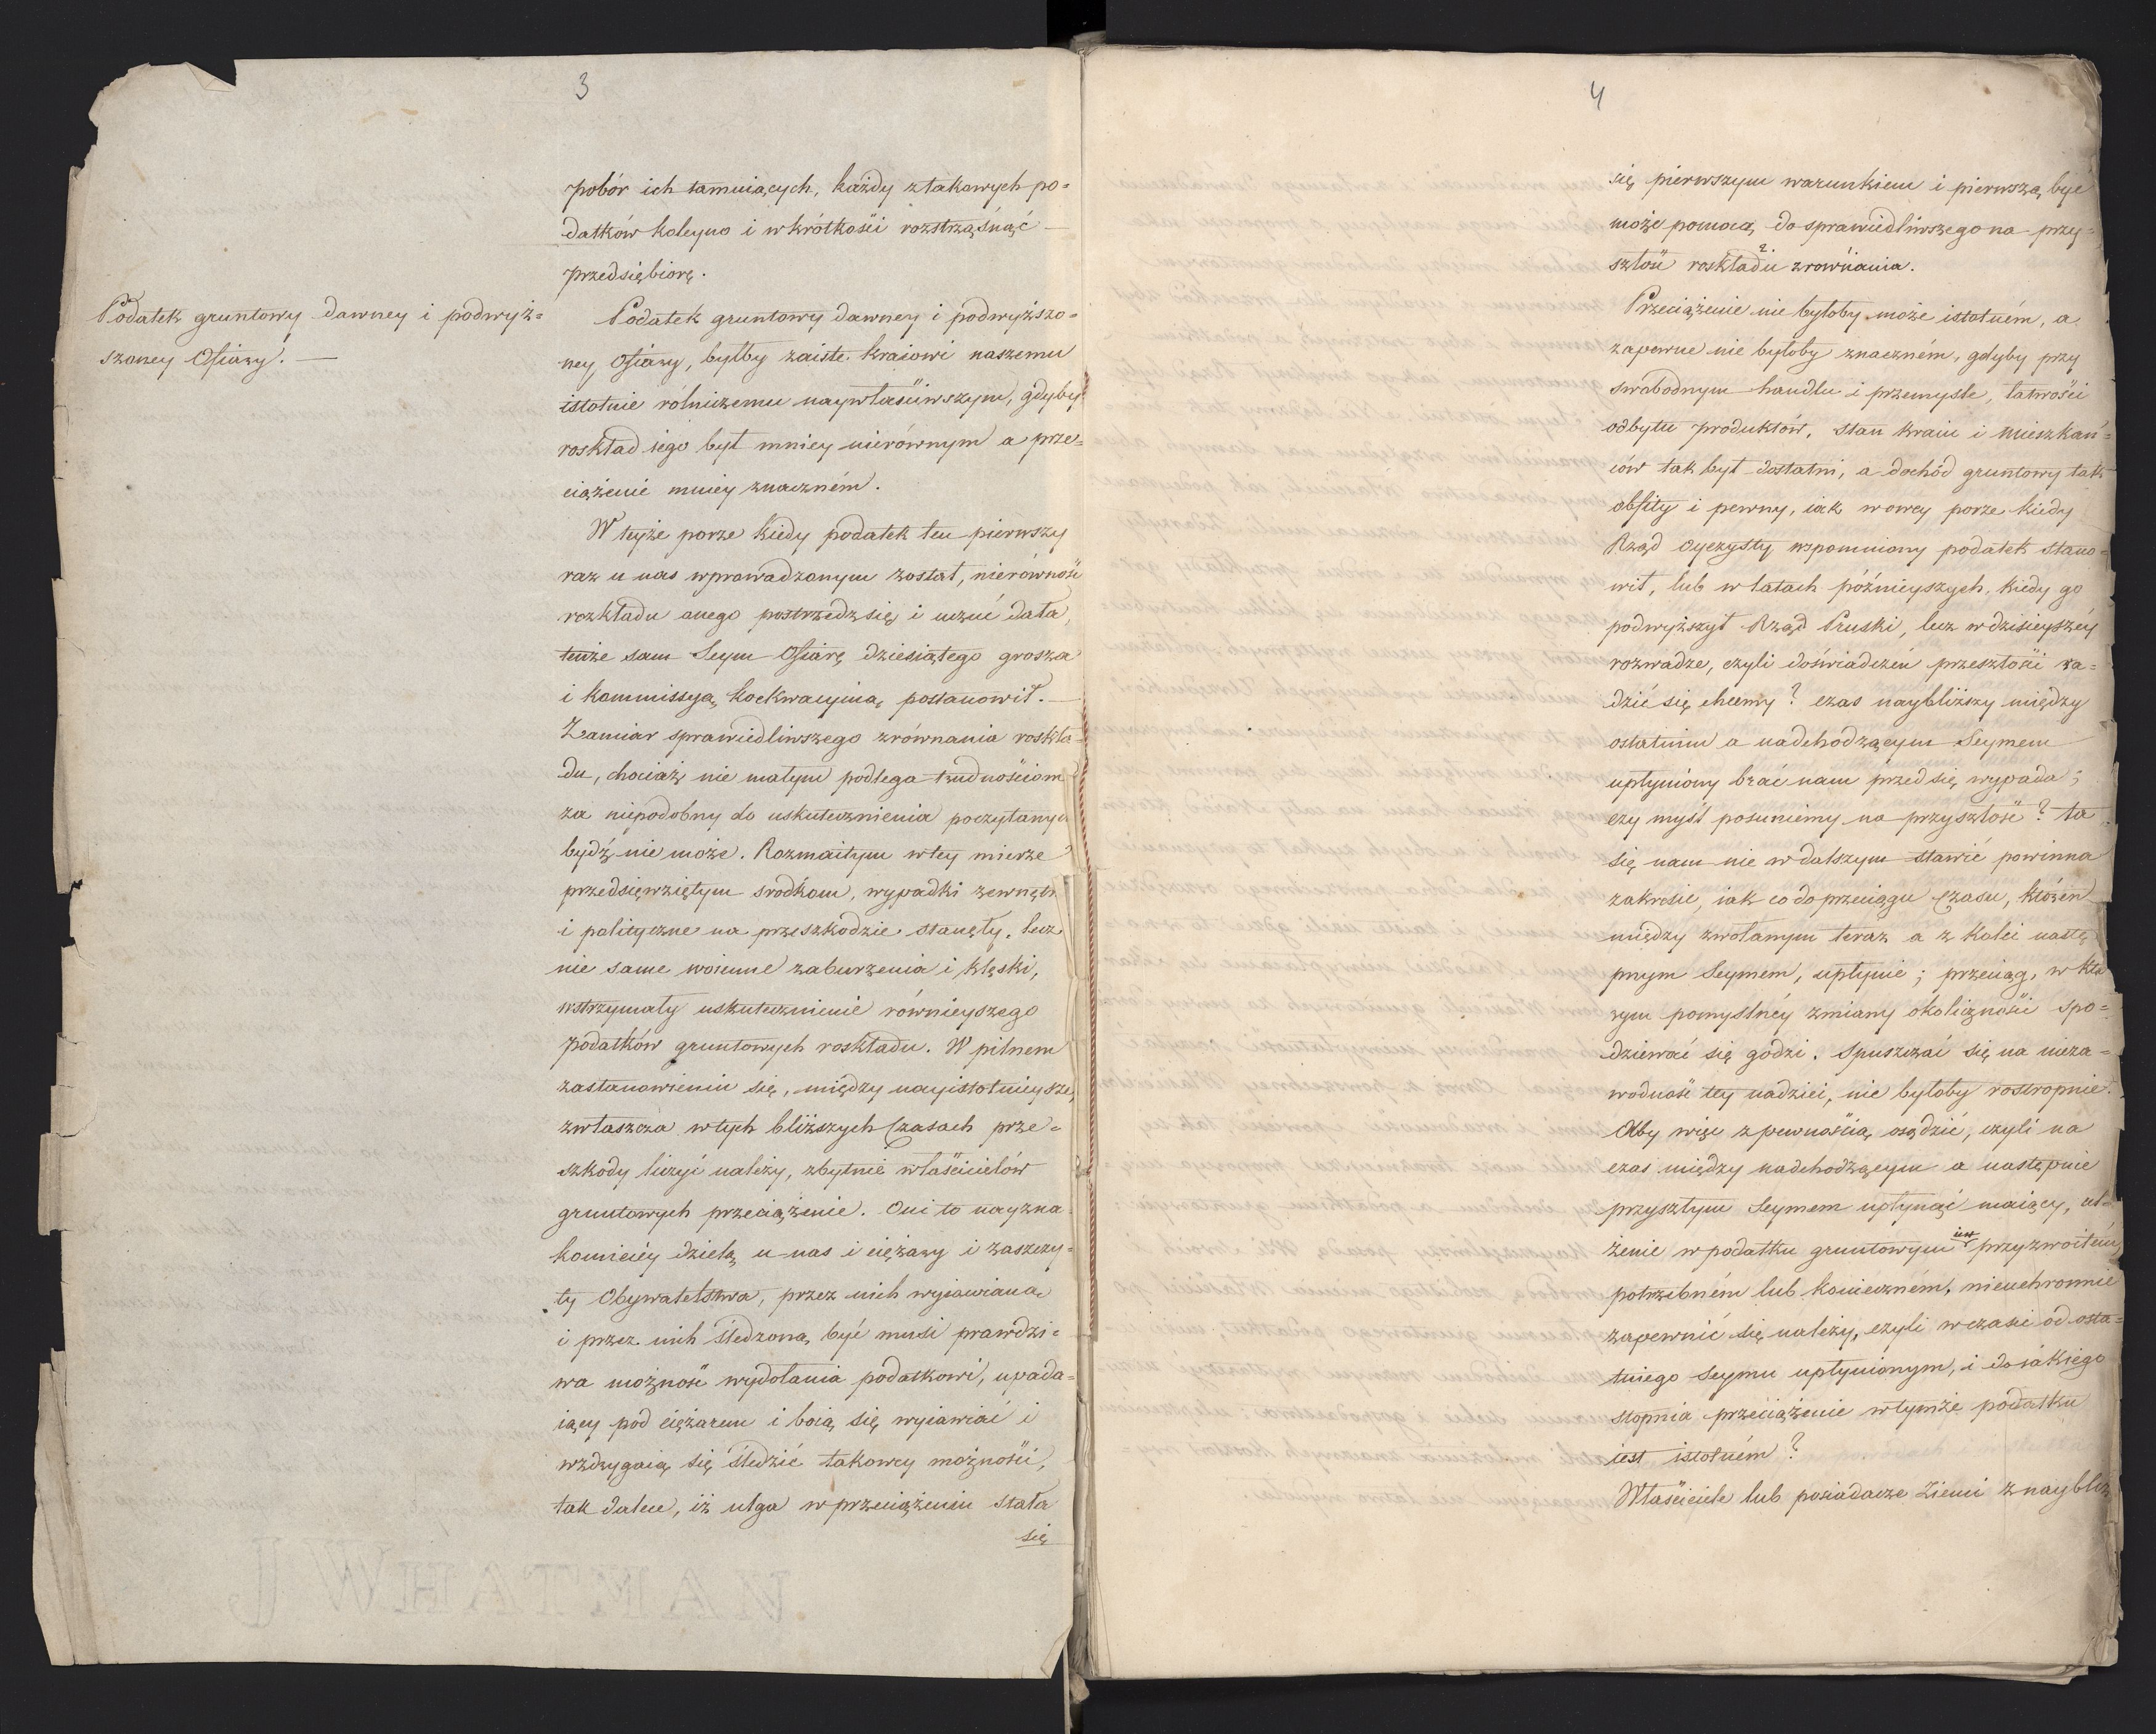 3
pobór ich tamuiących, każdy z takowych po=
datków koleyno i w krótkości rozstrząsnąć —
przedsiębiorę.
Podatek gruntowy dawney i podwyż=
szoney Ofiary. —
Podatek gruntowy dawney i podwyższo=
ney Ofiary, byłby zaiste kraiowi naszemu
istotnie rólniczemu naywłaściwszym, gdyby
roskład iego był mniey nierównym a prze=
ciążenie mniey znaczném.
W teyże porze kiedy podatek ten pierwszy
raz u nas wprowadzonym został, nierówność
rozkładu onego postrzedz się i uczuć dała,
tenże sam Seym Ofiarę dziesiątego grosza
i kommissyą koekwacyiną postanowił. —
Zamiar sprawiedliwszego zrównania roskła=
du, chociaż nie małym podlega trudnościom
za niepodobny do uskutecznienia poczytanym
bydź nie może. Rozmaitym w tey mierze
przedsięwziętym srodkom, wypadki zewnętrz
i polityczne na przeszkodzie stanęły. lecz
nie same woienne zaburzenia i klęski,
wstrzymały uskutecznienie równieyszego
podatków gruntowych roskładu. W pilnem
zastanowieniu się, między nayistotnieysze,
zwłaszcza w tych bliższych Czasach prze=
szkody liczyć należy, zbytnie właścicielów
gruntowych przeciążenie. Oni to nayzna=
komiciéy dzielą u nas i ciężary i zaszczy=
ty Obywatelstwa, przez nich wyiawianą
i przez nich śledzoną być musi prawdzi=
wa możność wydołania podatkowi, upada=
iący pod ciężarem i boią się wyiawiać i
wzdrygaią się śledzić takowey możności,
tak dalece, iż ulga w przeciążeniu stała
się
4
się pierwszym warunkiem i pierwszą być
może pomocą do sprawiedliwszego na przy=
szłość roskładu zrównania.
Przeciążenie nie byłoby może istotném, a
zapewne nie byłoby znaczném, gdyby przy
swobodnym handlu i przemyśle, łatwości
odbytu produktów, stan kraiu i mieszkań=
ców tak był dostatni, a dochód gruntowy tak
obfity i pewny, iak w owéy porze kiedy
Rząd oyczysty wspomniony podatek stano=
wił, lub w latach późnieyszych, kiedy go
podwyższył Rząd Pruski, lecz w dzisieyszéy
rozwadze, czyli doświadczeń przeszłości ra=
dzić się chcemy? czas naybliższy między
ostatnim a nadchodzącym Seymem
upłyniony brać nam przed się wypada;
czy myśl posuniemy na przyszłość? ta
się nam nie w dalszym stawić powinna
zakresie, iak co do przeciągu Czasu, któren
między zwołanym teraz a z kolei nastę
pnym Seymem, upłynie; przeciąg, w któ
rym pomyślnéy zmiany okoliczności spo=
dziewać się godzi. Spuszczać się na nieza=
wodność tey nadziei, nie byłoby rostropnie.
Aby więc z pewnością osądzić, czyli na
czas między nadchodzącym a następnie
przyszłym Seymem upłynąć maiący, ul=
żenie w podatku gruntowym iest przyzwoitém,
potrzebném lub konieczném, nieuchronnie
zapewnić się należy, czyli w czasie od osta=
tniego Seymu upłynionym, i do iakiego
stopnia przeciążenie w tymże podatku
iest istotném?
Właściciele lub posiadacze Ziemi z naybliż